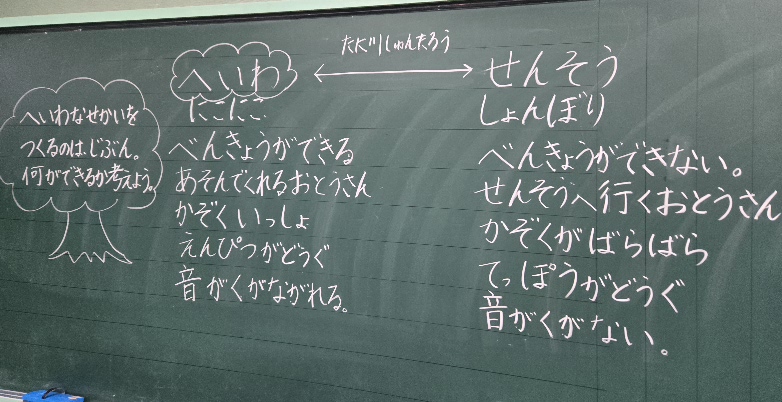 へいわなせかいを
つくるのは、じぶん。
何ができるか考えよう。
たにがわしゅんたろう
へいわ
にこにこ
べんきょうができる
あそんでくれるおとうさん
かぞくいっしょ
えんぴつがどうぐ
音がくがながれる。
せんそう
しょんぼり
べんきょうができない。
せんそうへ行くおとうさん
かぞくがばらばら
てっぽうがどうぐ
音がくがない。